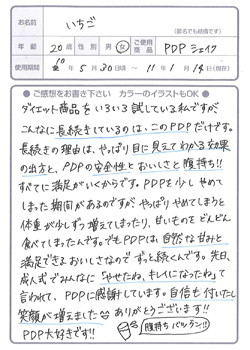 お名前
いちご
(匿名でも結構です)
年齢 20歳 性別 男・女 ご使用商品 PDPシェイク
使用期間 10年5月30日頃~11年1月14日(現在)
●ご感想をお書き下さい カラーのイラストもOK●
ダイエット商品をいろいろ試しているんですが
こんなに長続きしているのは、このPDPだけです。
長続きの理由は、やっぱり目に見えてわかる効果
の出方と、PDPの安全性とおいしさと腹持ち!!
すべてに満足がいくからです。PDPを少しやめて
しまった期間があるのですが、やっぱりやめてしまうと
体重が少しずつ増えてしまったり、甘いものをどんどん
食べてしまったんです。でもPDPは、自然な甘みと
満足できるおいしさなのでずっと続くんです。先日、
成人式でみんなに「やせたね、キレイになったね」て
言われて、PDPに感謝しています。自信も付いたし
笑顔が増えました ありがとうございます!!
PDP大好きです!!
腹持ちバツグン!!